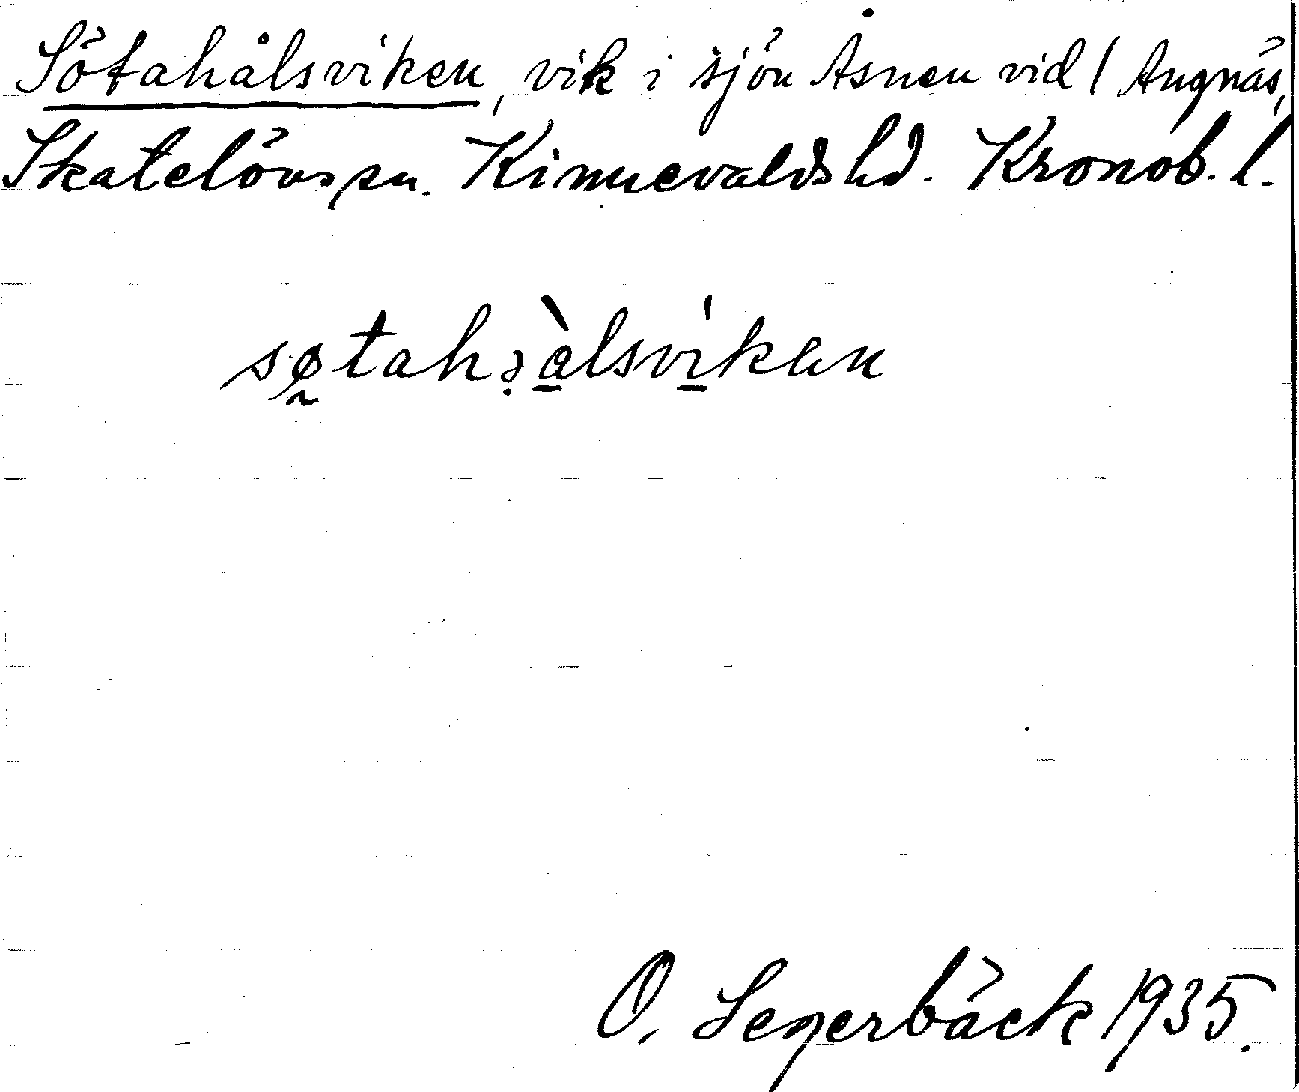 Sötahålsviken, vik i sjön Åsnen vid / Angnäs,
Skatelövs sn. Kinnevalds hd. Kronob. l.
sø̰tahə̣à̱lsví̱ken
O. Segerbäck 1935.